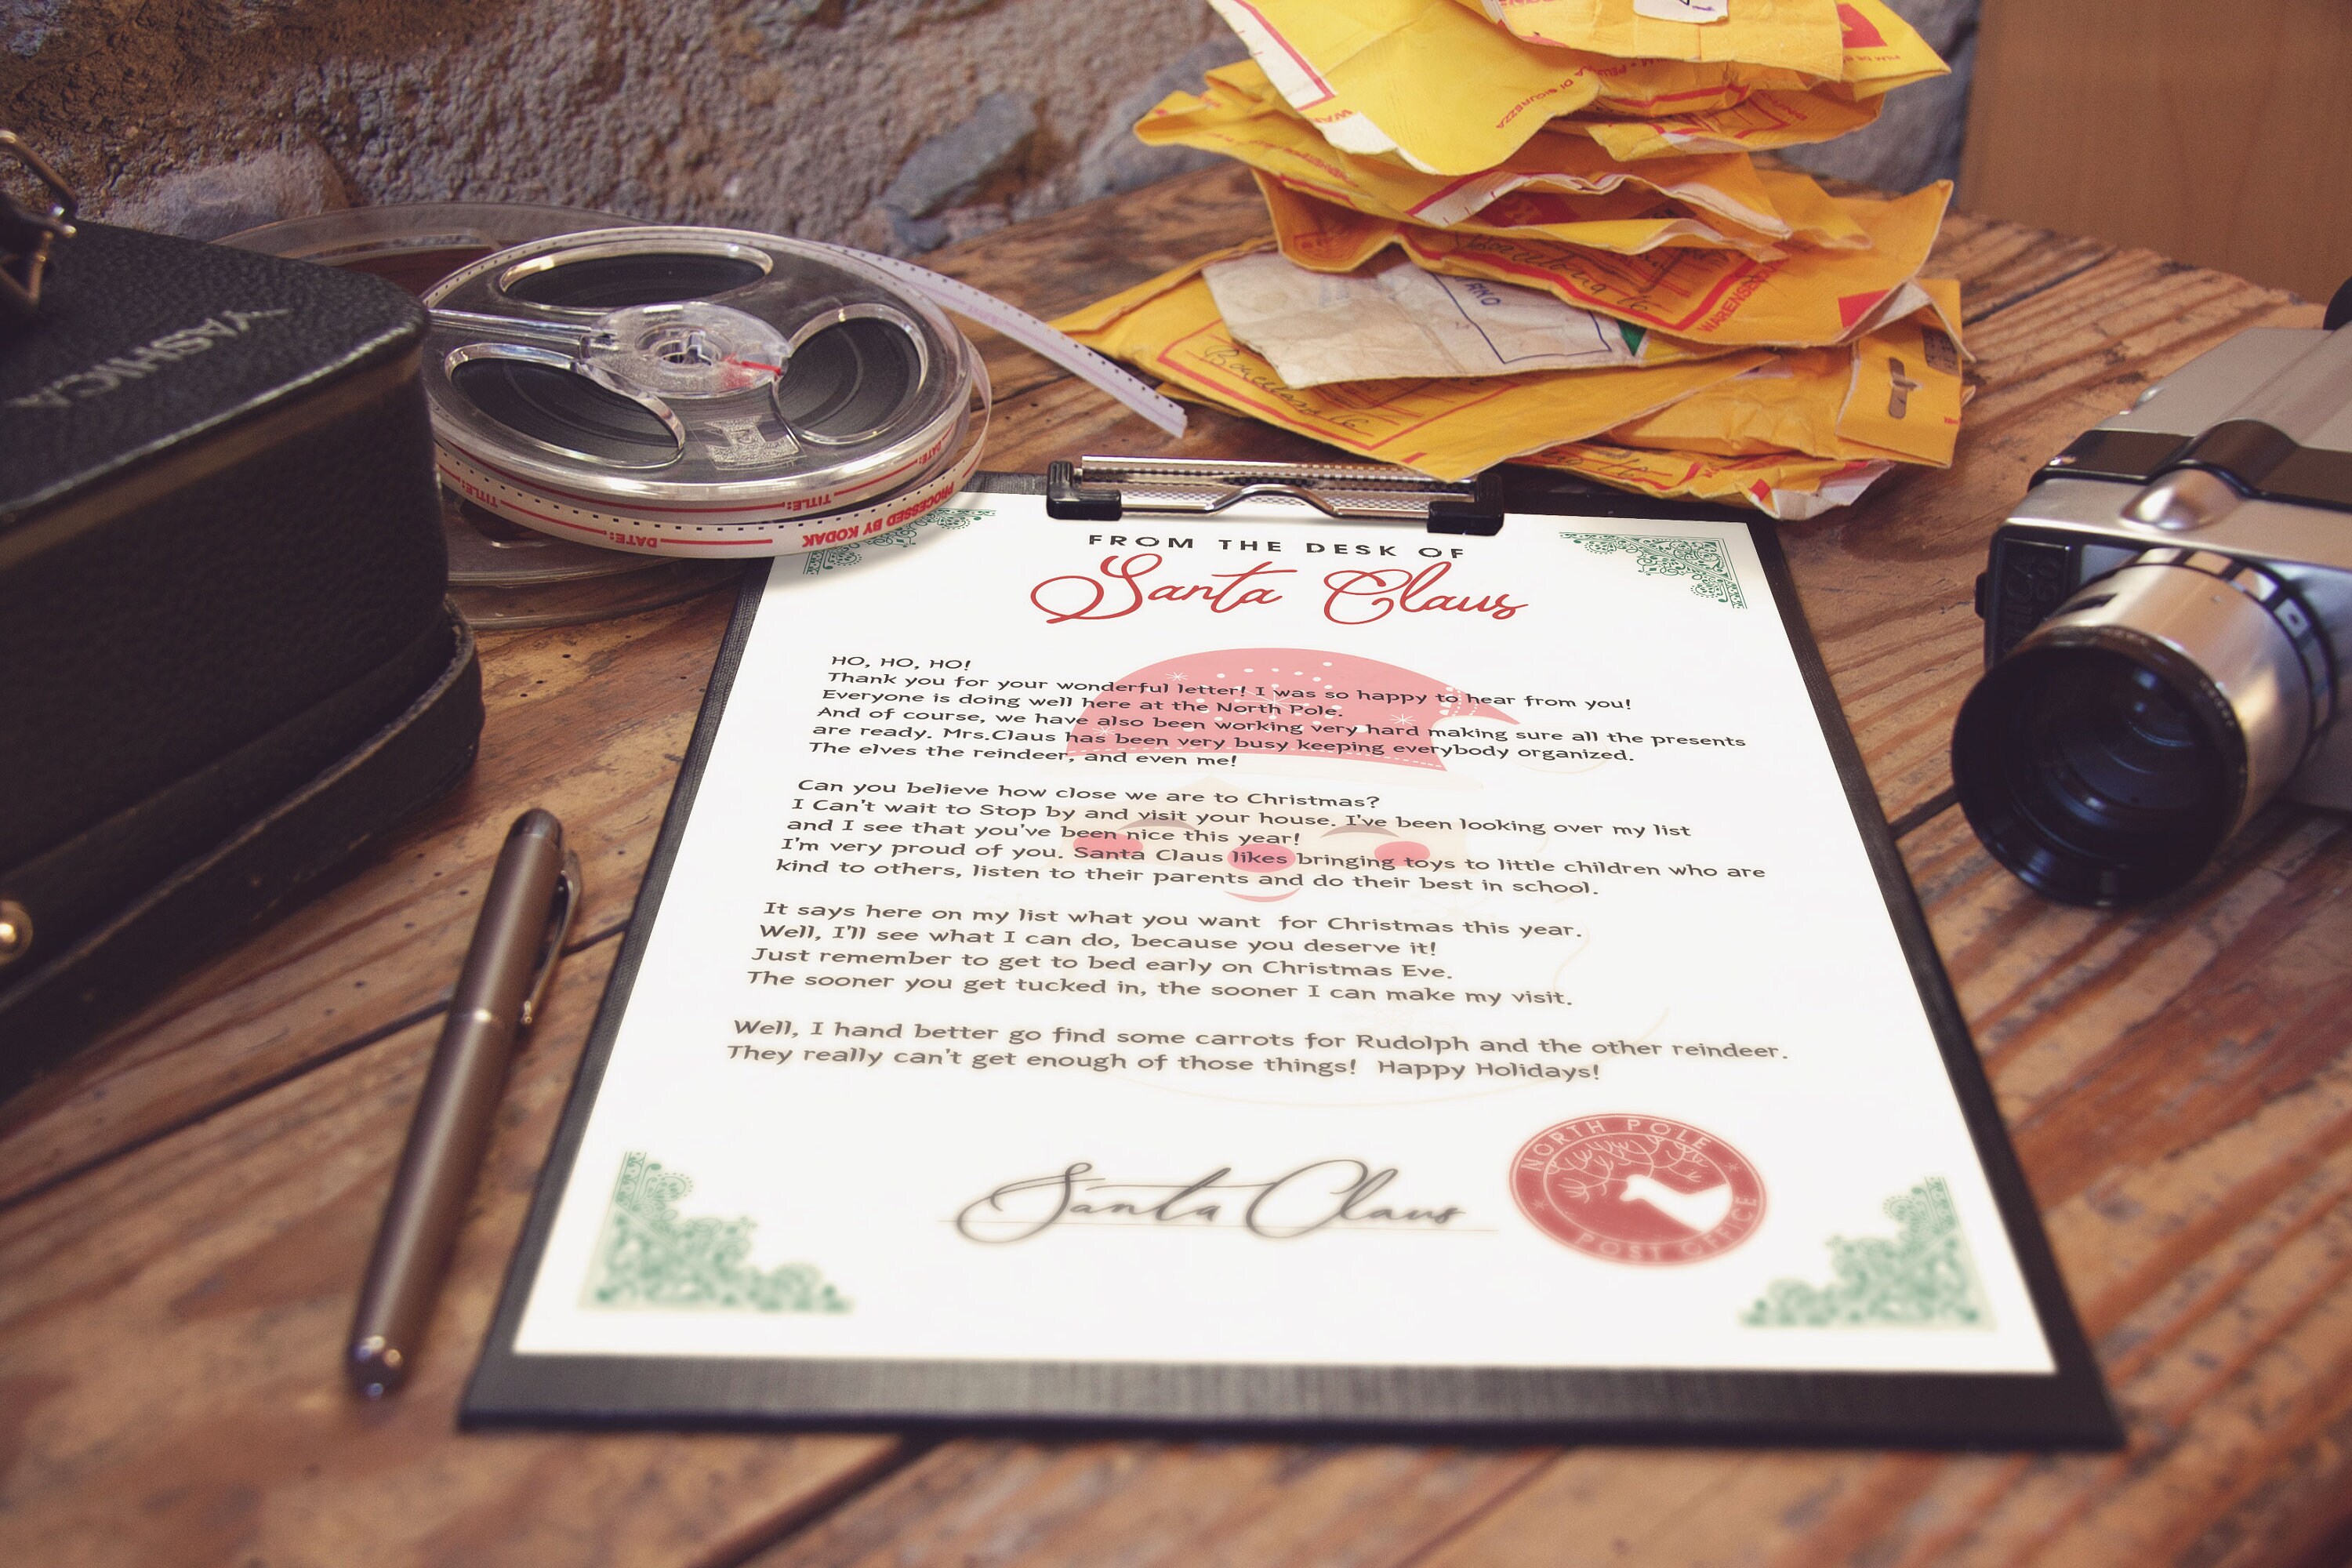 YASHICA
TITLE:
DATE:
TITLE:
PROCESSED BY KODAK
DI SICUREZZA
Barcelona 16
Barcelona 16
FROM THE DESK OF
Santa Claus
HO, HO, HO!
Thank you for your wonderful letter! I was so happy to hear from you!
Everyone is doing well here at the North Pole.
And of course, we have also been working very hard making sure all the presents
are ready. Mrs.Claus has been very busy keeping everybody organized.
The elves the reindeer, and even me!
Can you believe how close we are to Christmas?
I Can't wait to Stop by and visit your house. I've been looking over my list
and I see that you've been nice this year!
I'm very proud of you. Santa Claus likes bringing toys to little children who are
kind to others, listen to their parents and do their best in school.
It says here on my list what you want for Christmas this year.
Well, I'll see what I can do, because you deserve it!
Just remember to get to bed early on Christmas Eve.
The sooner you get tucked in, the sooner I can make my visit.
Well, I hand better go find some carrots for Rudolph and the other reindeer.
They really can't get enough of those things! Happy Holidays!
Santa Claus
NORTH POLE
POST OFFICE